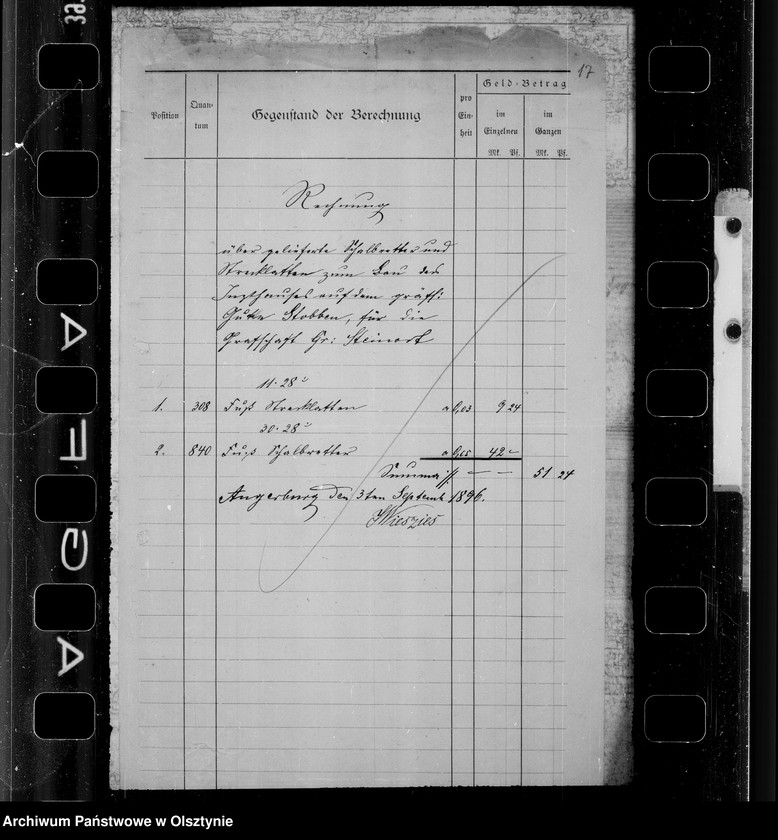 17
Position
Quan-
tum
Gegenstand der Berechnung
pro
Ein-
heit
Geld-Betrag
im
Einzelnen
im
Ganzen
Mk. Pf. Mk. Pf.
Rechnung
über gelieferte Schalbretter und
Strecklatten zum Bau des
Insthauses auf dem gräfl:
Gute Stobben, für die
Grafschaft Gr: Steinort
11·28
1. 308 Fuß Strecklatten a 0,03 9 24
30·28
2. 840 Fuß Schalbretter a 0,05 42 -
Summa - - 51 24
Angerburg den 3ten Septemb 1896.
AGFA
Archiwum Państwowe w Olsztynie